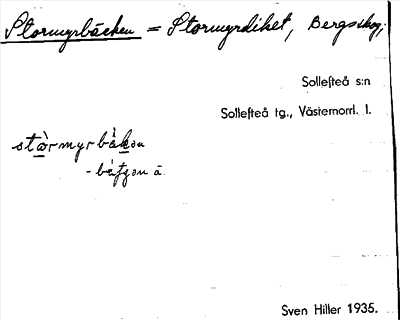 Stormyrbäcken = Stormyrdiket, Bergskog,
Sollefteå s:n
Sollefteå tg., Västernorrl. l.
stòrmyrbäkən
Sven Hiller 1935.